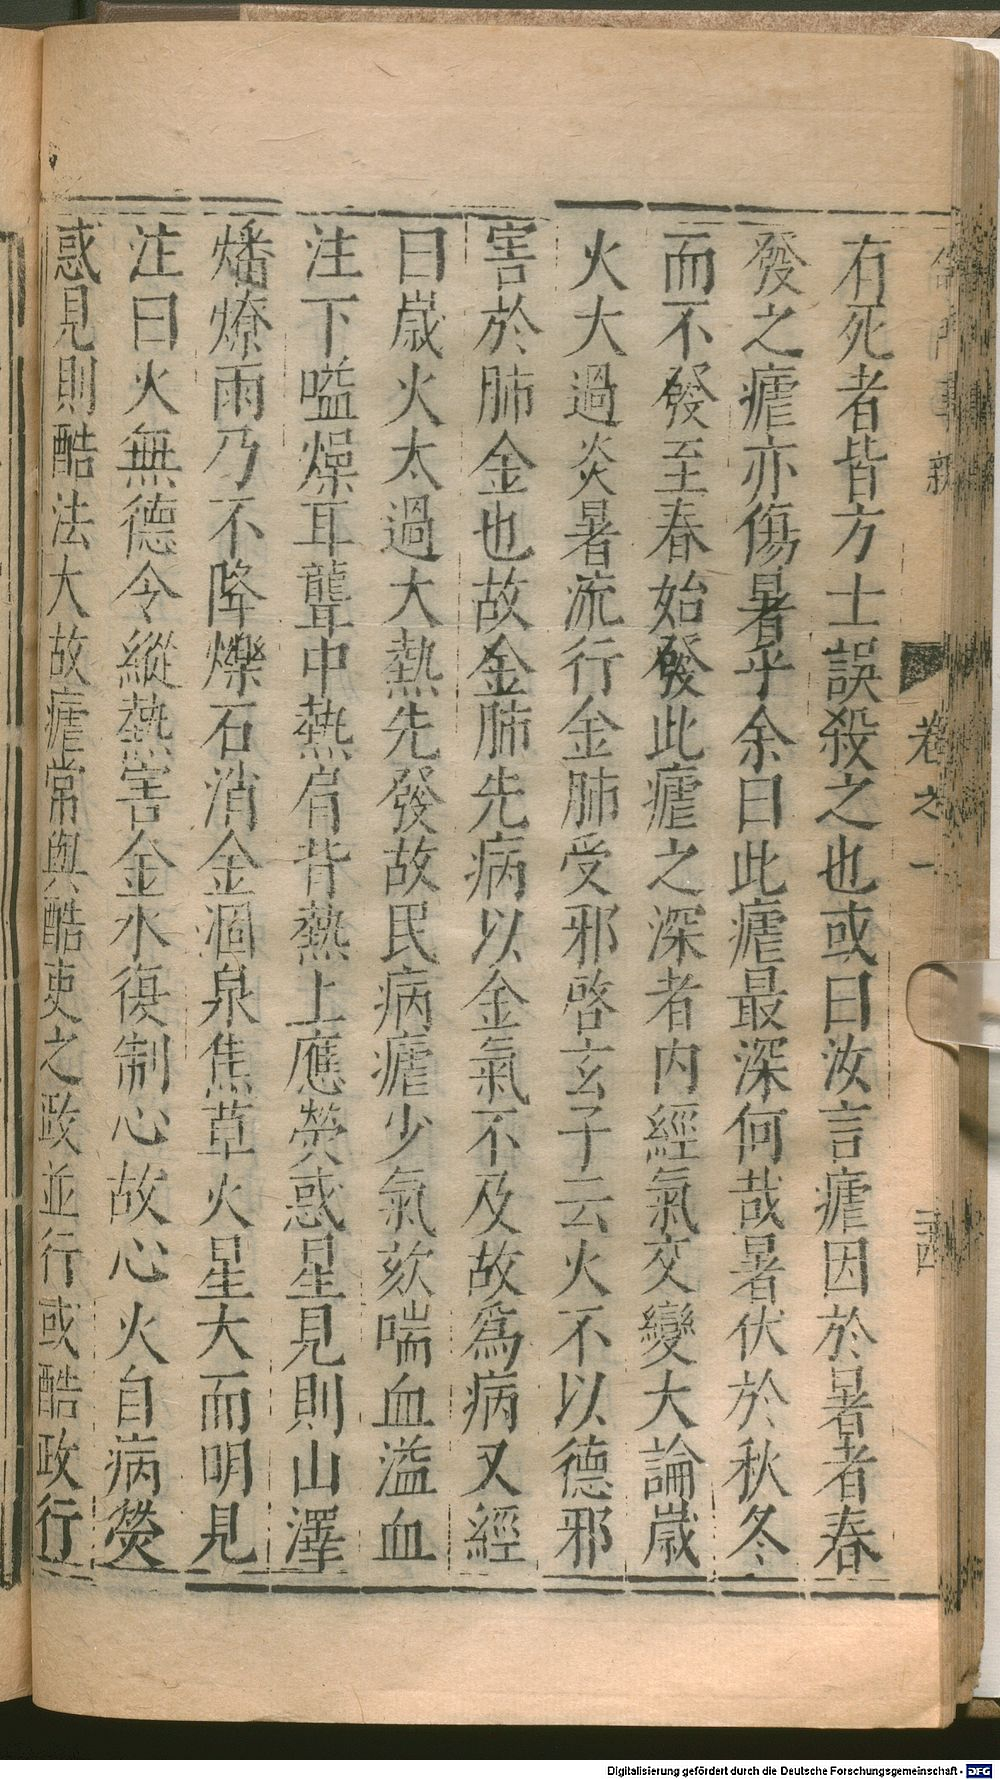 儒門事親
卷之一
二四
有死者皆方士誤殺之也或曰汝言瘧因於暑者春
發之瘧亦傷暑乎余曰此瘧最深何哉暑伏於秋冬
而不發至春始發此瘧之深者内經氣交變大論歲
火大過炎暑流行金肺受邪啓玄子云火不以德邪
害於肺金也故金肺先病以金氣不及故爲病又經
曰歲火太過大熱先發故民病瘧少氣欬喘血溢血
注下嗌燥耳聾中熱肩背熱上應熒惑星見則山澤
燔燎雨乃不降爍石消金涸泉焦草火星大而明見
注曰火無德令縱熱害金水復制心故心火自病熒
惑見則酷法大故瘧常與酷吏之政並行或酷政行
Digitalisierung gefördert durch die Deutsche Forschungsgemeinschaft - DFG